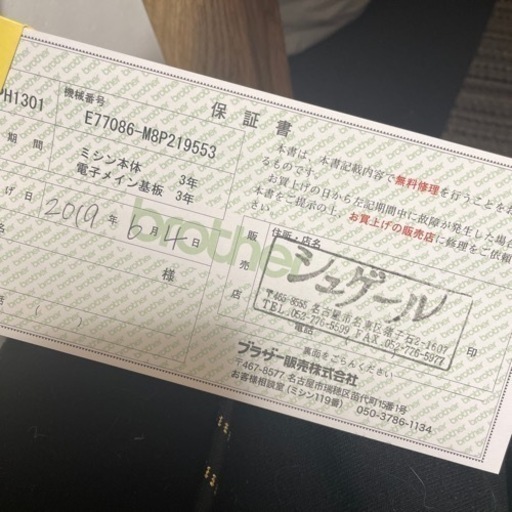 保証書
PH1301
機械番号
E77086-M8P219553
期間
ミシン本体 3年
電子メイン基板 3年
げ日
2019年 6月4日
名
様
話 ( )
brother
販売店
住所・店名
シュゲール
〒465-8555 名古屋市名東区猪子石2-1607
TEL.052-776-5599 FAX.052-776-5977
電話
印
本書は、本書記載内容で無料修理を行うことをお
るものです。
お買上げの日から左記期間中に故障が発生した場合
本書をご提示の上、お買上げの販売店に修理をご依頼
さい。
裏面をごらんください
ブラザー販売株式会社
〒467-8577 名古屋市瑞穂区苗代町15番1号
お客様相談室(ミシン119番) 050-3786-1134